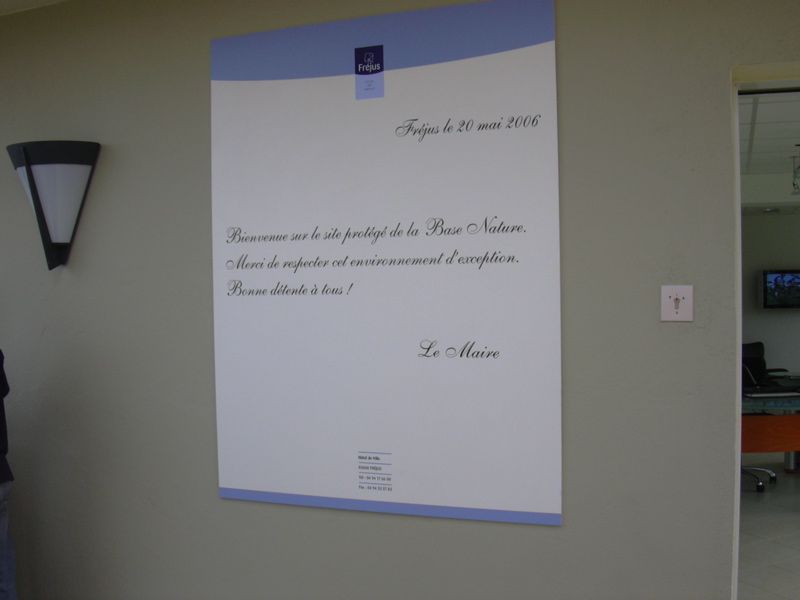 Fréjus
Fréjus le 20 mai 2006
Bienvenue sur le site protégé de la Base Nature.
Merci de respecter cet environnement d'exception.
Bonne détente à tous !
Le Maire
Hôtel de Ville